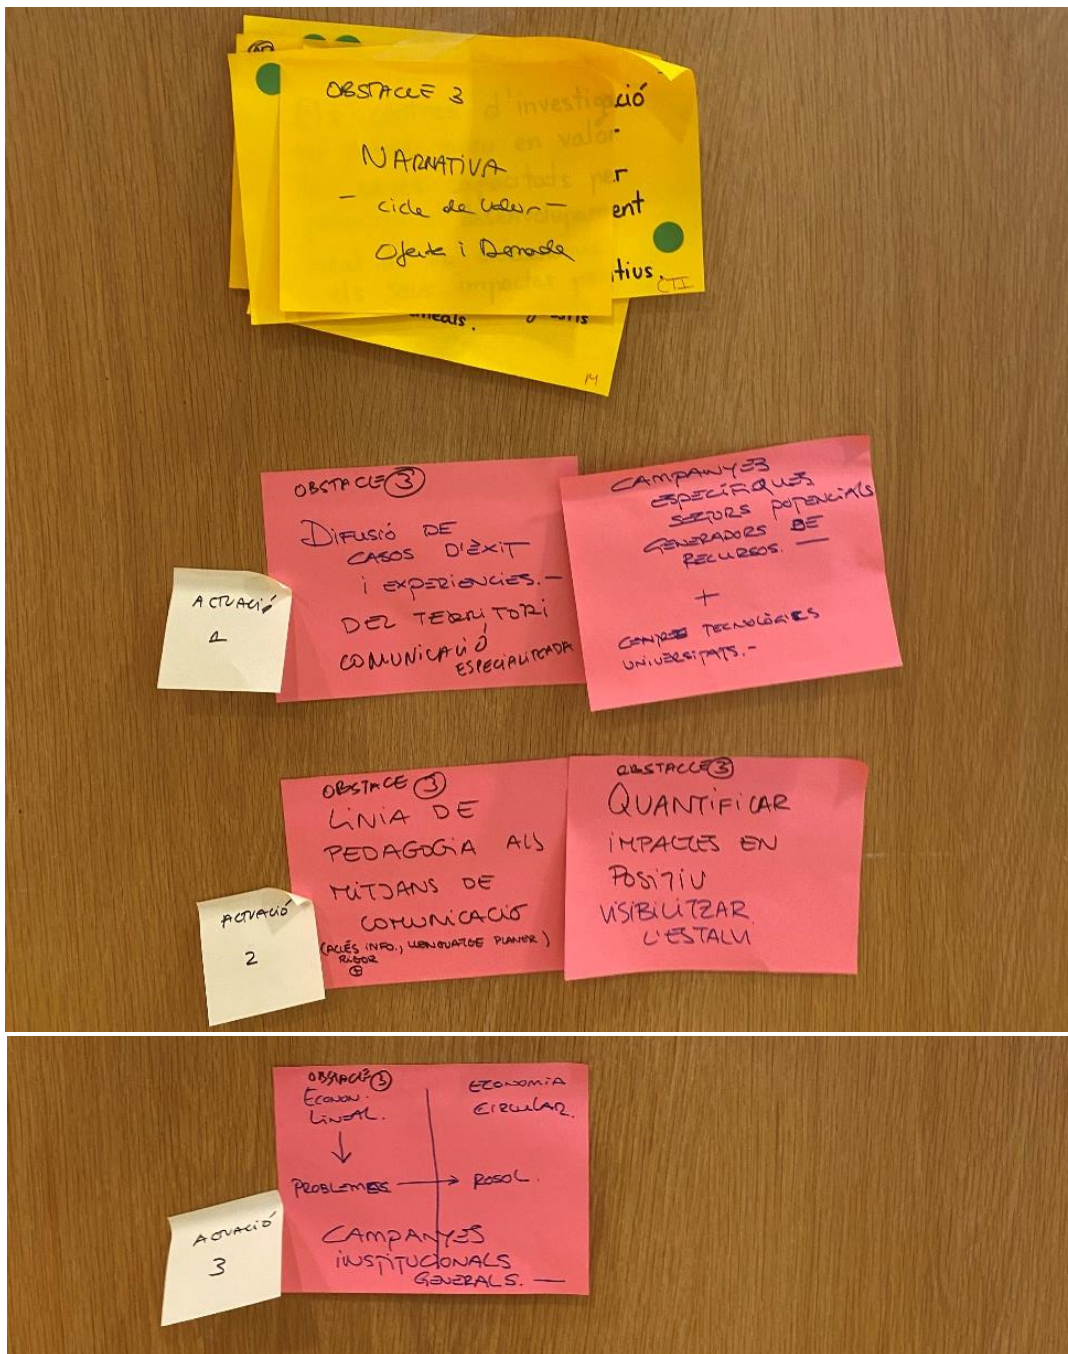 OBSTACLE 3
NARRATIVA
- cicle de valor -
Oferta i Demanda
ció
r
ent
tius.
CTI
M
OBSTACLE 3
DIFUSIÓ DE
CASOS D'ÈXIT
i EXPERIENCIES.-
DEL TERRITORI
COMUNICACIÓ
ESPECIALITZADA
CAMPANYES
ESPECÍFIQUES
SECTORS POTENCIALS
GENERADORS DE
RECURSOS. —
+
CENTRES TECNOLÒGICS
UNIVERSITATS.-
ACTUACIÓ
1
OBSTACLE 3
LÍNIA DE
PEDAGOGIA ALS
MITJANS DE
COMUNICACIÓ
(ACCÉS INFO., LLENGUATGE PLANER)
RIGOR
OBSTACLE 3
QUANTIFICAR
IMPACTES EN
POSITIU
VISIBILITZAR
L'ESTALVI
ACTUACIÓ
2
OBSTACLE 3
ECONOMIA
ECON.
LINEAL.
CIRCULAR.
PROBLEMES → RSOL.
CAMPANYES
INSTITUCIONALS
GENERALS. —
ACTUACIÓ
3